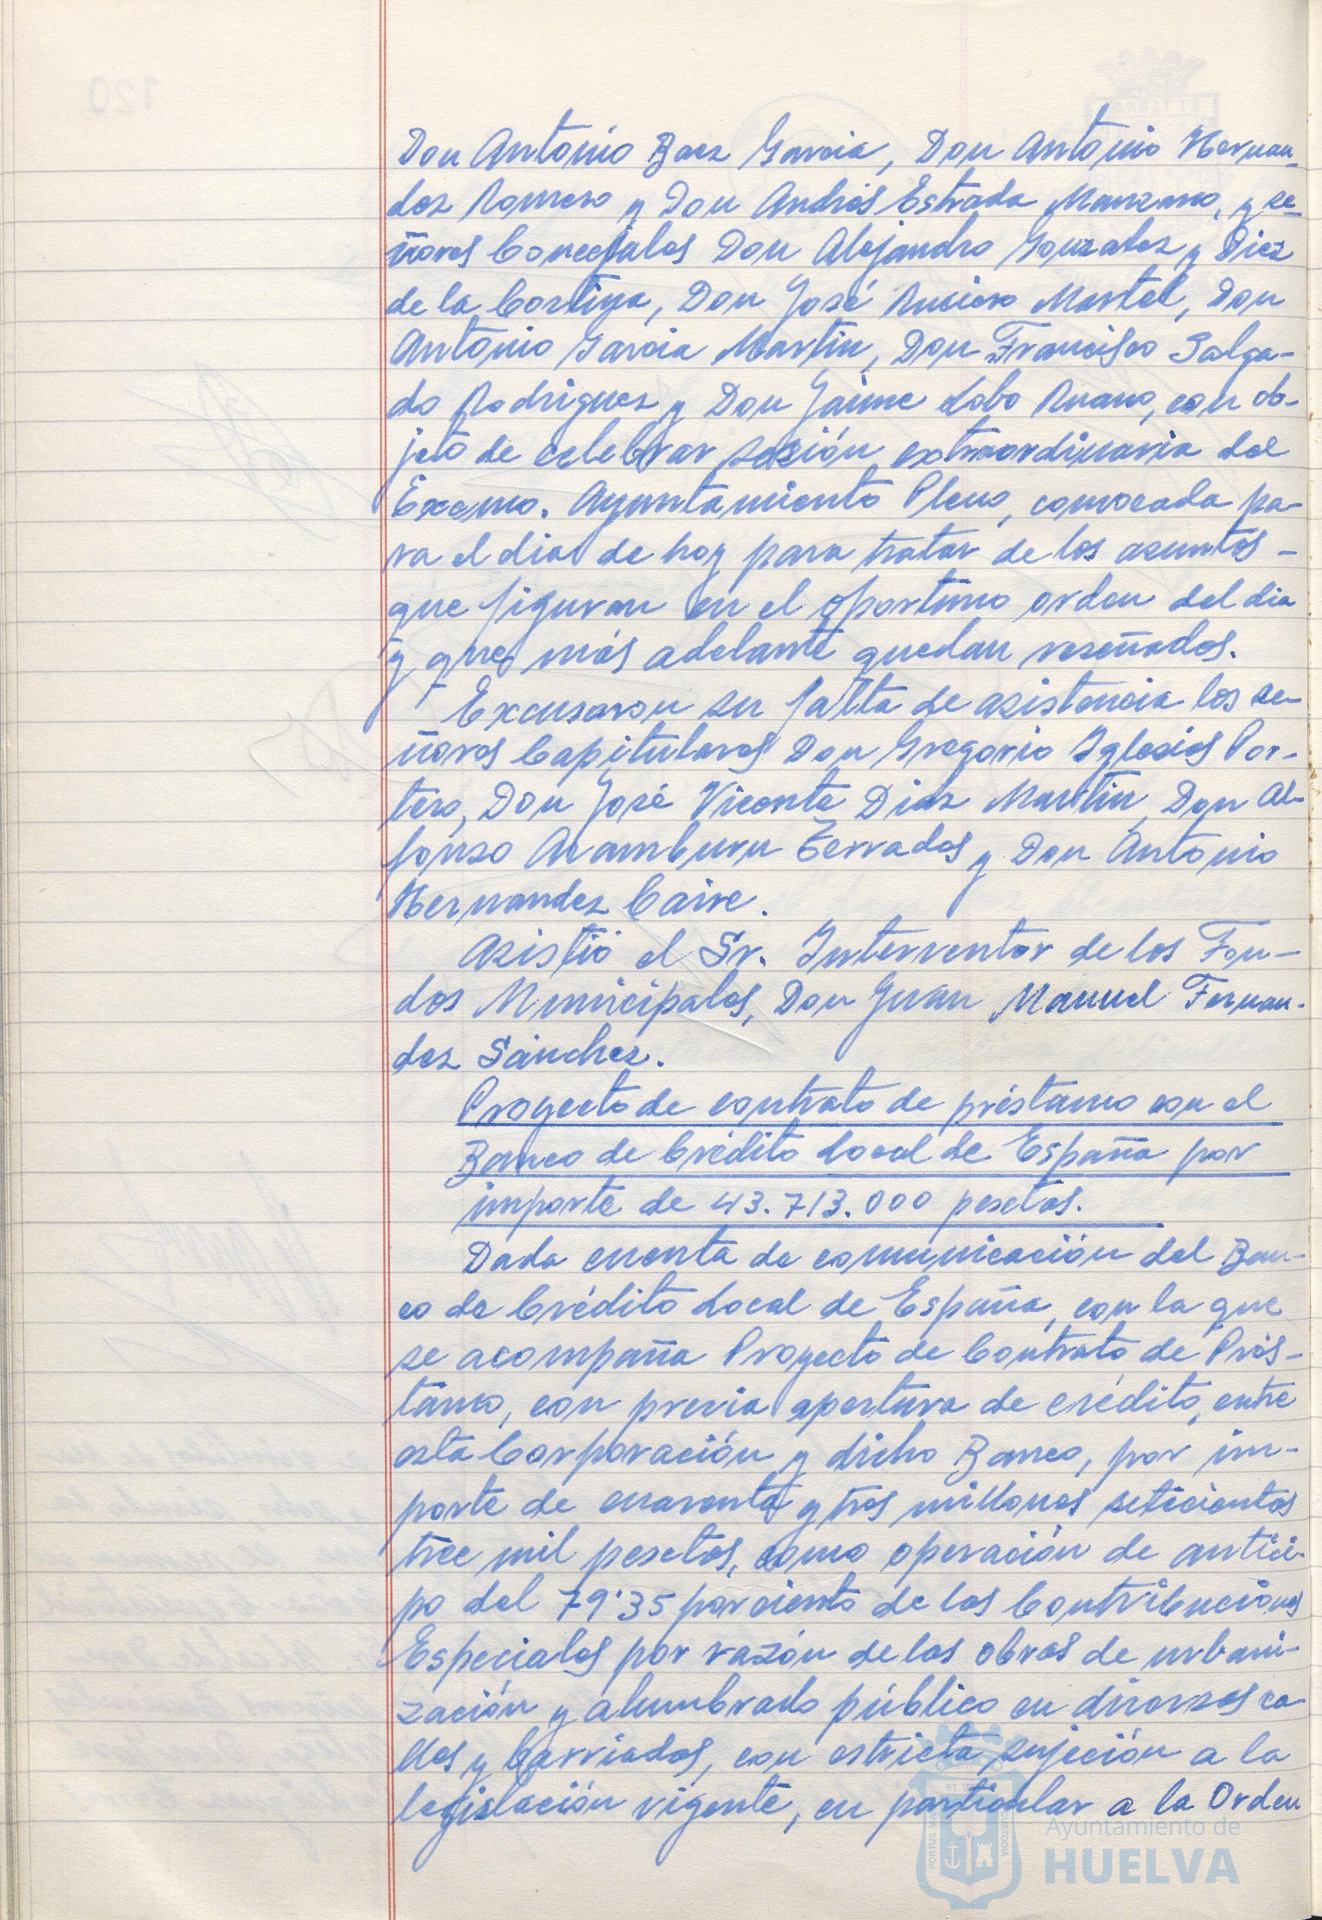 Don Antonio Baez Garcia, Don Antonio Hernan-
dez Romero y Don Andrés Estrada Manzano, y se-
ñores Concejales Don Alejandro Gonzalez y Diez
de la Cortina, Don José Ruciero Martel, Don
Antonio Garcia Martin, Don Francisco Salga-
do Rodriguez y Don Jaime Lobo Ruano, con ob-
jeto de celebrar sesión extraordinaria del
Excmo. Ayuntamiento Pleno, convocada pa-
ra el dia de hoy para tratar de los asuntos -
que figuran en el oportuno orden del dia
y que más adelante quedan reseñados.
Excusaron su falta de asistencia los se-
ñores Capitulares Don Gregorio Iglesias Por-
tero, Don José Vicente Diaz Martin, Don Al-
fonso Aramburu Terrados y Don Antonio
Hernandez Caire.
Asistió el Sr. Interventor de los Fon-
dos Municipales, Don Juan Manuel Fernan-
dez Sánchez.
Proyecto de contrato de préstamo con el
Banco de Crédito Local de España por
importe de 43.713.000 pesetas.
Dada cuenta de comunicación del Ban-
co de Crédito Local de España, con la que
se acompaña Proyecto de Contrato de Prés-
tamo, con previa apertura de crédito, entre
esta Corporación y dicho Banco, por im-
porte de cuarenta y tres millones setecientos
trece mil pesetas, como operación de antici-
po del 79'35 por ciento de las Contribuciones
Especiales por razón de las obras de urbani-
zación y alumbrado público en diversas ca-
lles y barriadas, con estricta sujeción a la
legislación vigente, en particular a la Orden
Ayuntamiento de
HUELVA